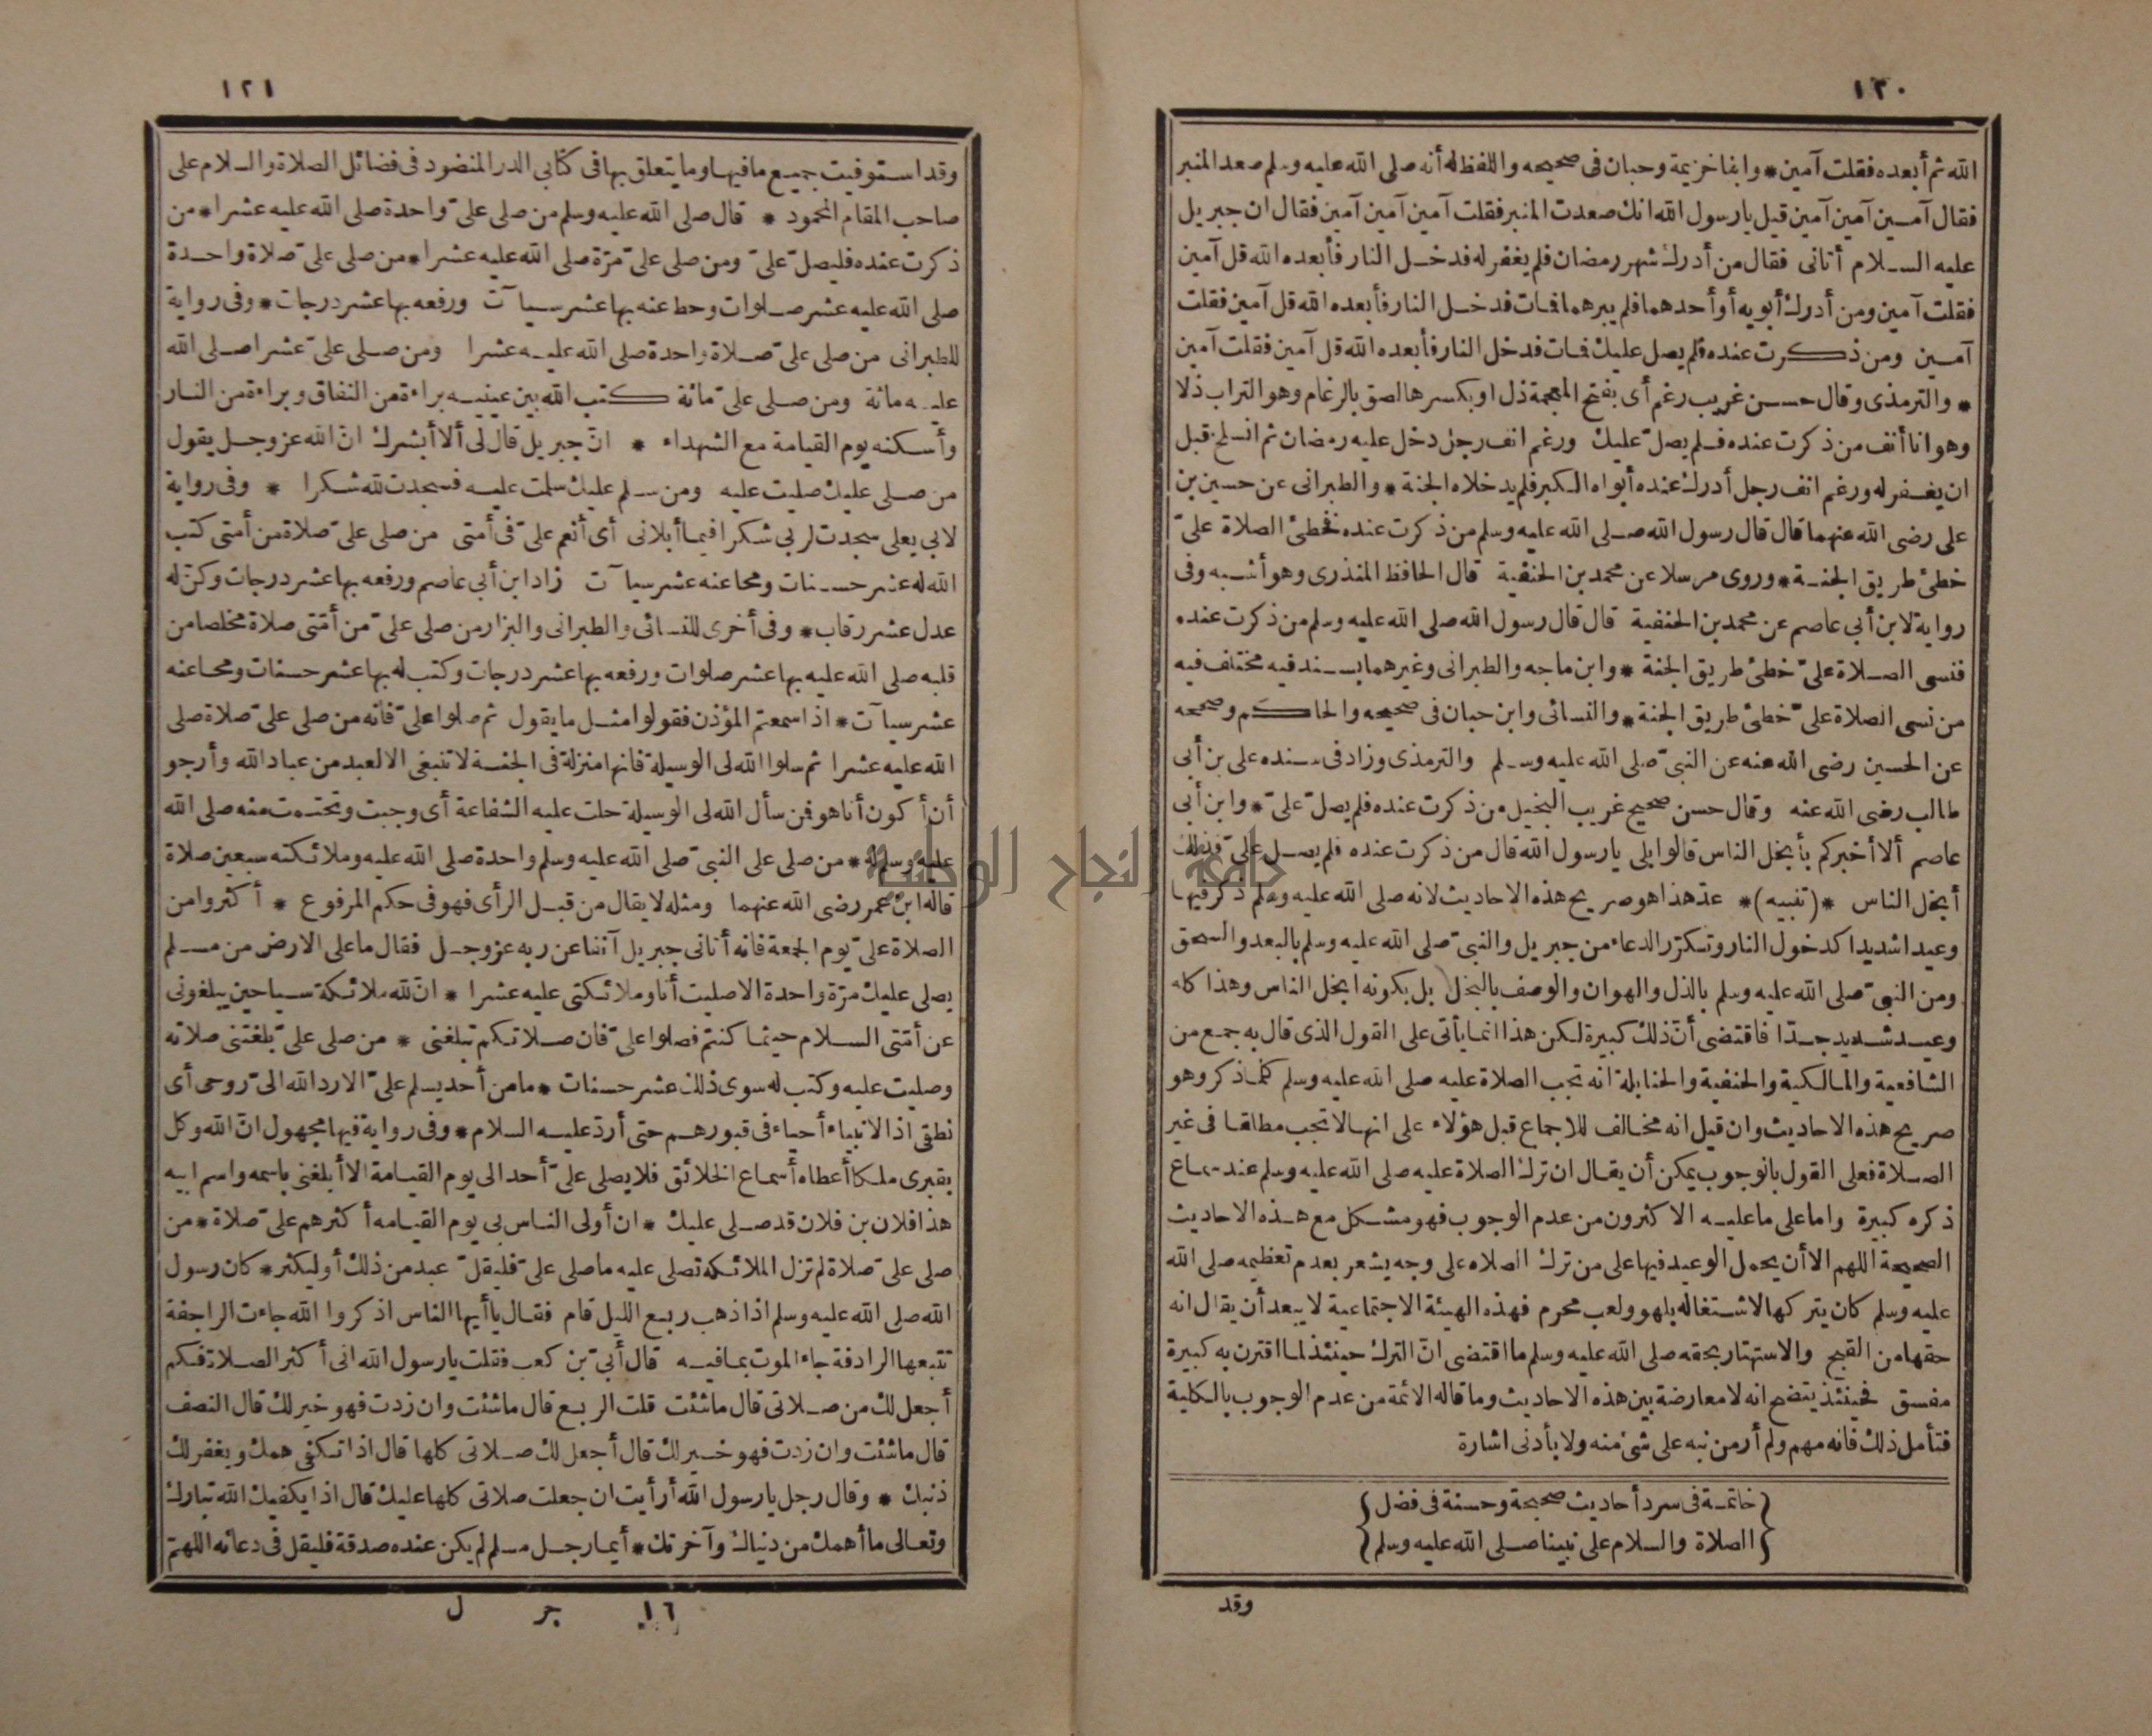 ١٢٠
الله ثم أبعده فقلت آمين * وابنا خزيمة وحبان فى صحيحه واللفظ له أنه صلى الله عليه وسلم صعد المنبر
فقال آمــين آمين آمين قيل يا رسول الله انك صعدت المنبر فقلت آمين آمين آمين فقال ان جبريل
عليه الســلام أتانى فقال من أدرك شهر رمضان فلم يغفر له فدخــل النار فأبعده الله قل آمين
فقلت آمين ومن أدرك أبويه أو أحدهما فلم يبرهما فمات فدخــل النار فأبعده الله قل آمين فقلت
آمــين ومن ذكرت عنده فلم يصل عليك فمات فدخل النار فأبعده الله قل آمين فقلت آمين
* والترمذى وقال حســن غريب رغم أى بفتح المعجمة ذل او بكسرها لصق بالرغام وهو التراب ذلا
وهوانا أنف من ذكرت عنده فــلم يصلّ عليك ورغم انف رجل دخل عليه رمضان ثم انسلخ قبل
ان يغــفر له ورغم انف رجل أدرك عنده أبواه الكبر فلم يدخلاه الجنة * والطبرانى عن حسين بن
على رضى الله عنهما قال قال رسول الله صــلى الله عليه وسلم من ذكرت عنده فخطئ الصلاة علىّ
خطئ طريق الجنــة * وروى مرسلا عن محمد بن الحنفية قال الحافظ المنذرى وهو أشــبه وفى
رواية لابن أبى عاصم عن محمد بن الحنفية قال قال رسول الله صلى الله عليه وسلم من ذكرت عنده
فنسى الصــلاة علىّ خطئ طريق الجنة * وابن ماجه والطبرانى وغيرهما بســند فيه مختلف فيه
من نسى الصلاة علىّ خطئ طريق الجنة * والنسائى وابن حبان فى صحيحه والحاكم وصححه
عن الحسين رضى الله عنه عن النبىّ صلى الله عليه وسـلم والترمذى وزاد فى سـنده على بن أبى
طالب رضى الله عنه وقال حسن صحيح غريب البخيل من ذكرت عنده فلم يصلّ علىّ * وابن أبى
عاصم ألا أخبركم بأبخل الناس قالوا بلى يا رسول الله قال من ذكرت عنده فلم يصــل علىّ فذلك
أبخل الناس * (تنبيه) * عدّ هذا هو صريح هذه الاحاديث لانه صلى الله عليه وسلم ذكر فيها
وعيدا شديدا كدخول النار وتكرّر الدعاء من جبريل والنبىّ صلى الله عليه وسلم بالبعد والسحق
ومن النبىّ صلى الله عليه وسلم بالذل والهوان والوصف بالبخل بل بكونه ابخل الناس وهذا كله
وعيــد شديد جــدّا فاقتضى أنّ ذلك كبيرة لكن هذا انما يأتى على القول الذى قال به جمــع من
الشافعية والمالكية والحنفية والحنابلة انه تجب الصلاة عليه صلى الله عليه وسلم كلما ذكر وهو
صريح هذه الاحاديث وان قيل انه مخالف للاجماع قبل هؤلاء على انهــا لا تجب مطلقا فى غير
الصــلاة فعلى القول بالوجوب يمكن أن يقــال ان ترك الصلاة عليه صلى الله عليه وسلم عند سماع
ذكره كبيرة واما على ما عليــه الاكثرون من عدم الوجوب فهو مشــكل مع هــذه الاحاديث
الصحيحة اللهم الا أن يحمل الوعيد فيها على من ترك الصلاه على وجه يشعر بعدم تعظيمه صلى الله
عليه وسلم كان يتركها لاشــتغاله بلهو ولعب محرم فهذه الهيئة الاجتماعية لا يبعد أن يقال انه
حقها من القبح والاستهتار بحقه صلى الله عليه وسلم ما اقتضى انّ الترك حينئذ لما اقترن به كبيرة
مفسق فحينئذ يتضح انه لا معارضة بين هذه الاحاديث وما قاله الائمة من عدم الوجوب بالكلية
فتأمل ذلك فانه مهم ولم أر من نبه على شئ منه ولا بأدنى اشارة
{خاتمــة فى سرد أحاديث صحيحة وحسنة فى فضل}
{الصلاة والسلام على نبينا صــلى الله عليه وسلم}
وقد
١٢١
وقد استوفيت جميع ما فيها وما يتعلق بها فى كتابى الدر المنضود فى فضائل الصلاة والسلام على
صاحب المقام المحمود * قال صلى الله عليه وسلم من صلى علىّ واحدة صلى الله عليه عشرا * من
ذكرت عنده فليصلّ علىّ ومن صلى علىّ مرّة صلى الله عليه عشرا * من صلى علىّ صلاة واحــدة
صلى الله عليه عشر صــلوات وحط عنه بها عشر ســيآت ورفعه بها عشر درجات * وفى رواية
للطبرانى من صلى علىّ صــلاة واحدة صلى الله عليــه عشرا ومن صــلى علىّ عشرا صــلى الله
عليــه مائة ومن صــلى علىّ مائة كتب الله بين عينيــه براءة من النفاق وبراءة من النــار
وأسـكنه يوم القيامة مع الشهداء * انّ جبريل قال لى ألا أبشرك انّ الله عز وجــل يقول
من صــلى عليك صليت عليه ومن سـلم عليك سلمت عليــه فسجدت لله شــكرا * وفى رواية
لابى يعلى سجدت لربى شكرا فيما أبلانى أى أنعم علىّ فى أمتى من صلى علىّ صلاة من أمتى كتب
الله له عشر حســنات ومحا عنه عشر سيآت زاد ابن أبى عاصم ورفعه بها عشر درجات وكنّ له
عدل عشر رقاب * وفى أخرى للنسائى والطبرانى والبزار من صلى علىّ من أمّتى صلاة مخلصا من
قلبه صلى الله عليه بها عشر صلوات ورفعه بها عشر درجات وكتب له بها عشر حسنات ومحــا عنه
عشر سيآت * اذا سمعتم المؤذن فقولوا مثــل ما يقول ثم صلوا علىّ فانه من صلى علىّ صلاة صلى
الله عليه عشرا ثم سلوا الله لى الوسيلة فانها منزلة فى الجنــة لا تنبغى الا لعبد من عباد الله وأرجو
أن أكون أنا هو فمن سأل الله لى الوسيلة حلت عليه الشفاعة أى وجبت وتحتــمت منه صلى الله
عليه وسلم له * من صلى على النبىّ صلى الله عليه وسلم واحدة صلى الله عليه وملائكته سبعين صلاة
قاله ابن عمر رضى الله عنهما ومثله لا يقال من قبــل الرأى فهو فى حكم المرفوع * أكثروا من
الصلاة علىّ يوم الجمعة فانه أتانى جبريل آنفا عن ربه عز وجــل فقال ما على الارض من مســلم
يصلى عليك مرّة واحدة الا صليت أنا وملائكتى عليه عشرا * انّ لله ملائكة ســياحين يبلغونى
عن أمّتى الســلام حيثما كنتم فصلوا علىّ فان صــلاتكم تبلغنى * من صلى علىّ بلغتنى صلاته
وصليت عليه وكتب له سوى ذلك عشر حسنات * ما من أحد يسلم علىّ الا رد الله الىّ روحى أى
نطقى اذ الانبياء أحياء فى قبورهــم حتى أردّ عليــه السلام * وفى رواية فيها مجهول انّ الله وكل
بقبرى ملكا أعطاه أسماع الخلائق فلا يصلى علىّ أحد الى يوم القيــامة الا أبلغنى باسمه واسم ابيه
هذا فلان بن فلان قد صــلى عليك * ان أولى النــاس بى يوم القيــامه أكثرهم علىّ صلاة * من
صلى علىّ صلاة لم تزل الملائكة تصلى عليه ما صلى علىّ فليقلّ عبد من ذلك أو ليكثر * كان رسول
الله صلى الله عليه وسلم اذا ذهب ربــع الليل قام فقــال يا أيها الناس اذكروا الله جاءت الراجفة
تتبعها الرادفة جاء الموت بمــا فيــه قال أبىّ بن كعب فقلت يا رسول الله انى أكثر الصــلاة فكم
أجعل لك من صــلاتى قال ما شئت قلت الربــع قال ما شئت وان زدت فهو خير لك قال النصف
قال ما شئت وان زدت فهو خــير لك قال أجعل لك صــلاتى كلها قال اذا تكفى همك ويغفر لك
ذنبك * وقال رجل يا رسول الله أرأيت ان جعلت صلاتى كلها عليك قال اذا يكفيك الله تبارك
وتعــالى ما أهمك من دنياك وآخرتك * أيمــا رجــل مسـلم لم يكن عنده صدقة فليقل فى دعائه اللهمّ
١٦ جر ل
جامعة النجاح الوطنية